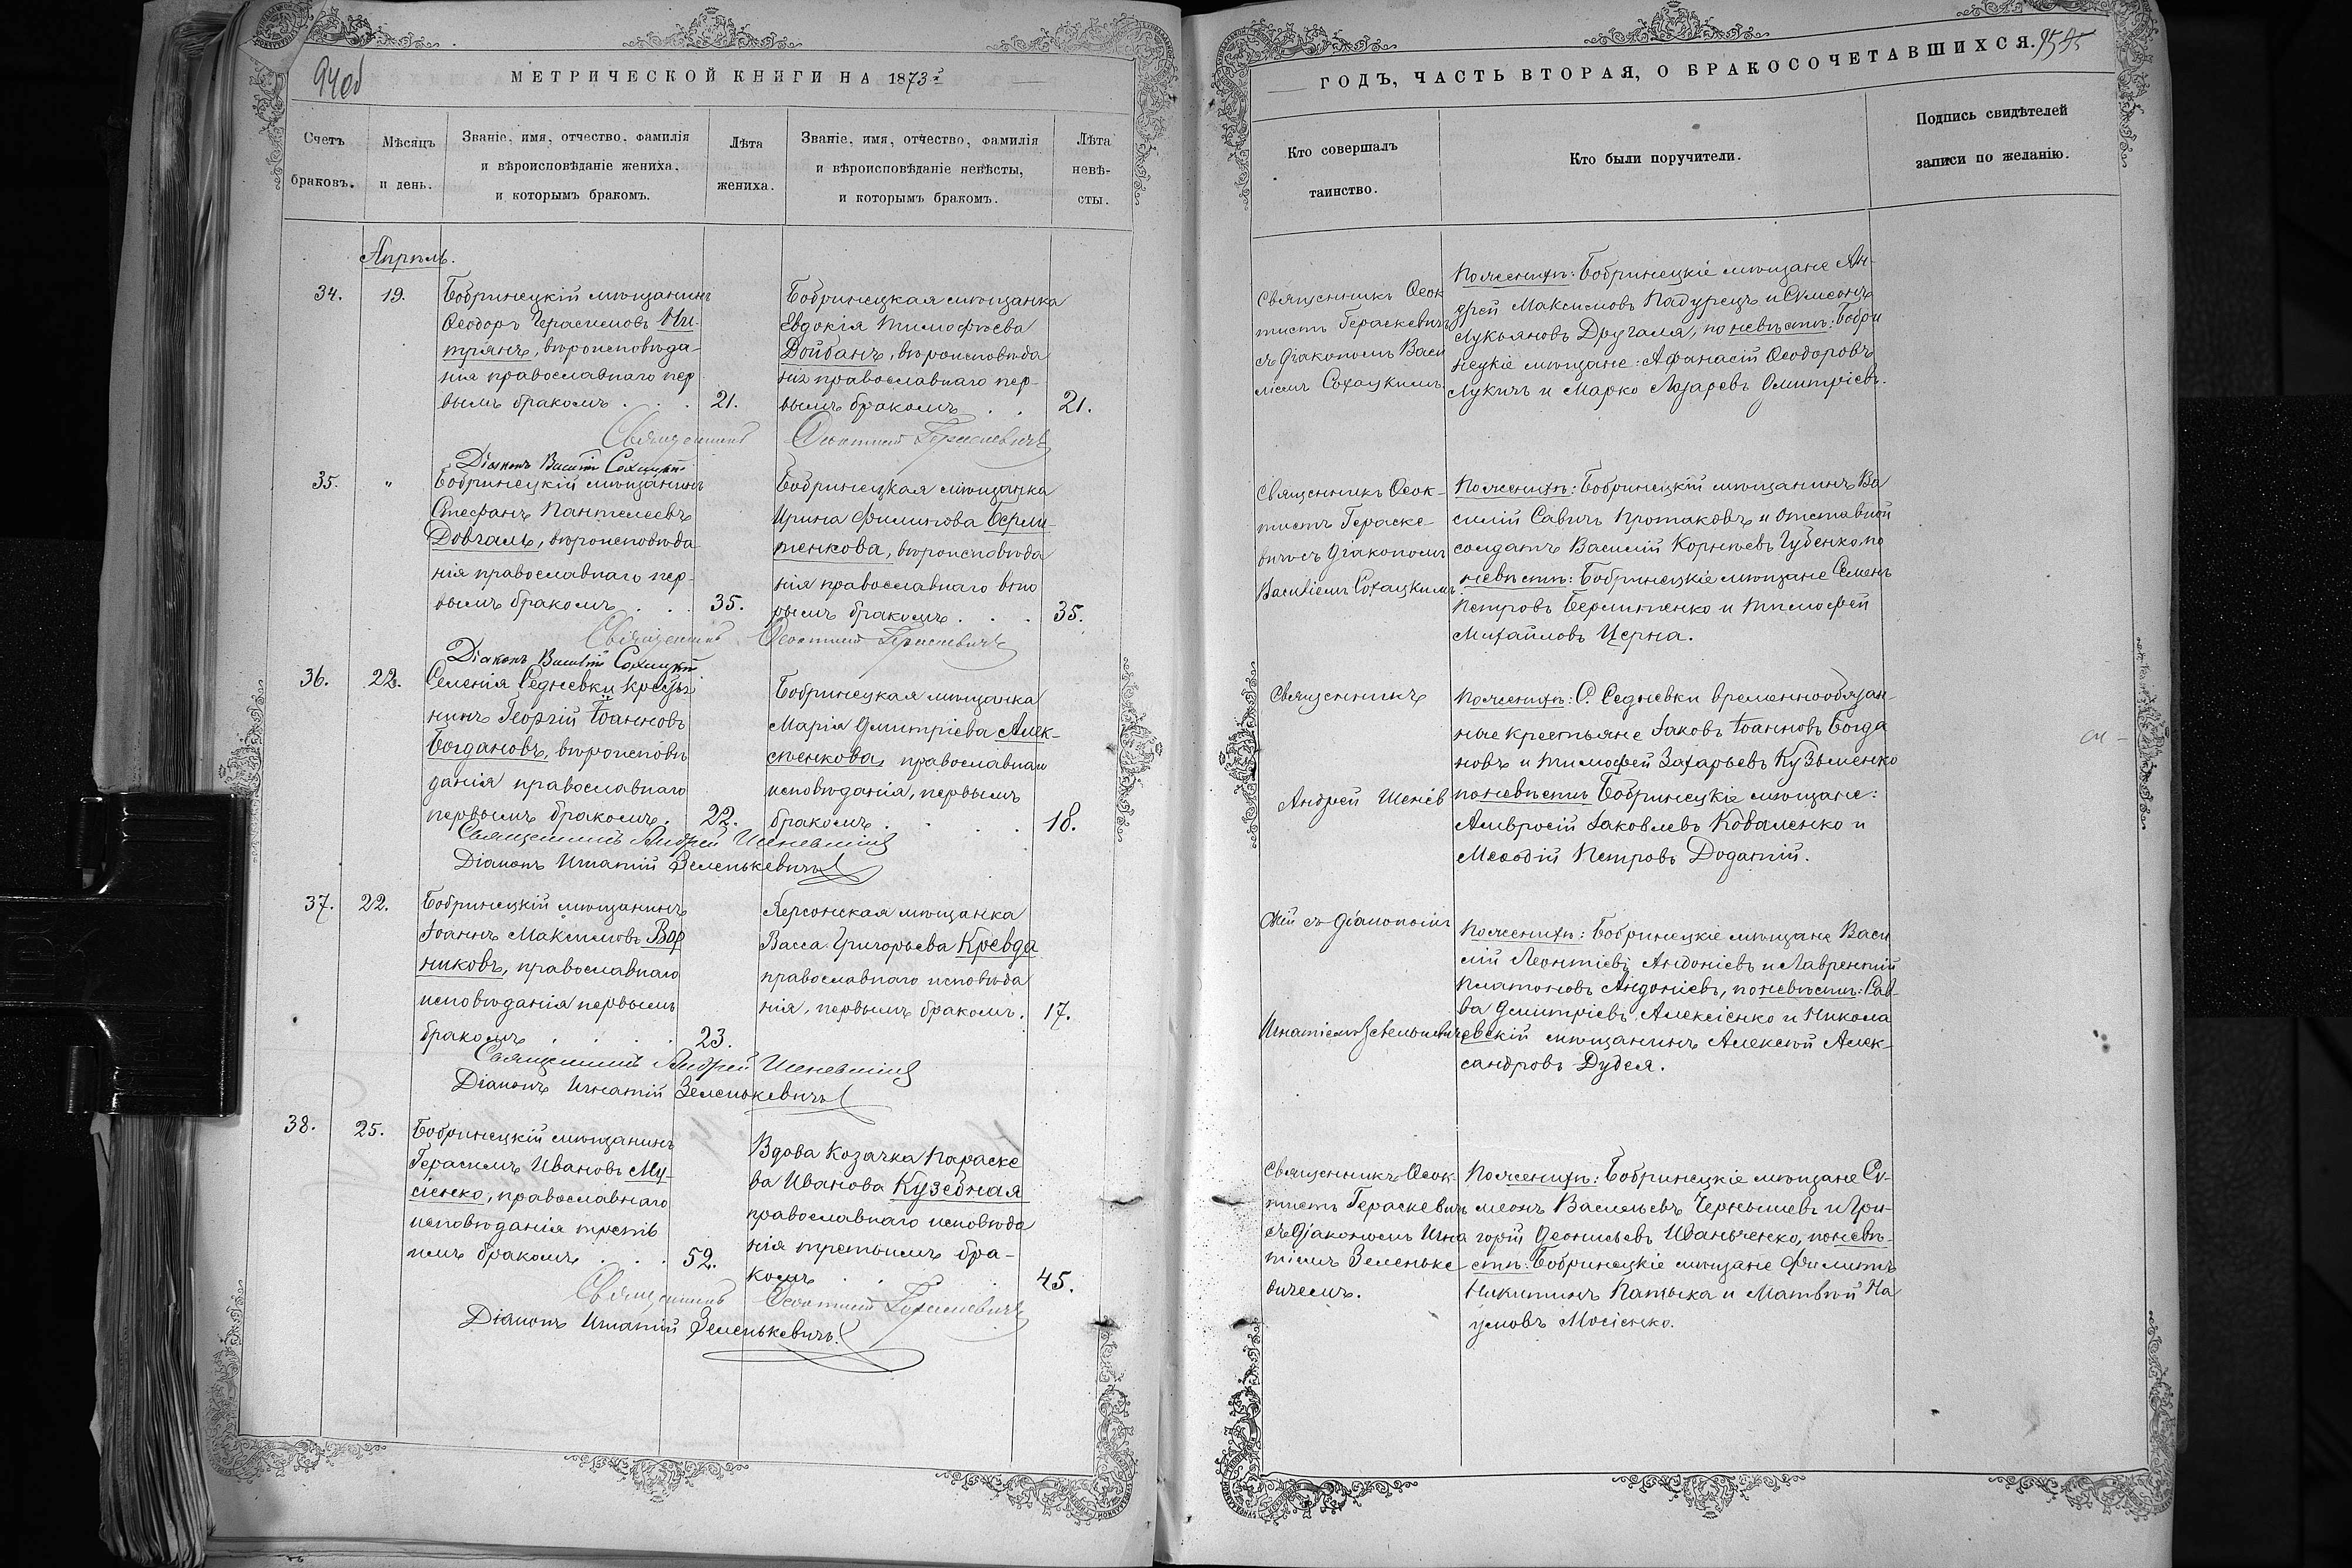 94об
МЕТРИЧЕСКОЙ КНИГИ НА 1873й
Счетъ браковъ.
Мѣсяцъ и день.
Званіе, имя, отчество, фамилія
и вѣроисповѣданіе жениха,
и которымъ бракомъ.
Лѣта
жениха.
Званіе, имя, отчество, фамилія
и вѣроисповѣданіе невѣсты,
и которымъ бракомъ.
Лѣта
невѣ-
сты.
Апрѣль.
34.
19.
Бобринецкій мѣщанинъ
Ѳеодоръ Герасимовъ
трянъ, вѣроисповѣда-
нія православнаго пер
вымъ бракомъ . . .
21.
Бобринецкая мѣщанка
Евдокія Тимофѣева
Дойбанъ, вѣроисповѣда
нія православнаго пер-
вымъ бракомъ . .
21.
Священникъ Ѳеоктистъ Гераскевичъ
Діаконъ Василій Сохацкій
35.
"
Бобринецкій мѣщанинъ
Стефанъ Пантелеевъ
Довгаль, вѣроисповѣда
нія православнаго пер-
вымъ бракомъ . . .
35.
Бобринецкая мѣщанка
Ирина Филипова Берли-
тенкова, вѣроисповѣда
нія православнаго вто
рымъ бракомъ . . .
35.
Священникъ Ѳеоктистъ Гераскевичъ
Діаконъ Василій Сохацкій
36.
22.
Селенія Седневки крестья
нинъ Георгій Іоанновъ
Богдановъ, вѣроисповѣ
данія православнаго
первымъ бракомъ.
22.
Бобринецкая мѣщанка
Марія Дмитріева Алек-
сѣенкова, православнаго
исповѣданія, первымъ
бракомъ . . . .
18.
Священникъ Андрей
Діаконъ Игнатій Зеленькевичъ
37.
22.
Бобринецкій мѣщанинъ
Іоаннъ Максимовъ Вор
никовъ, православнаго
исповѣданія первымъ
бракомъ . . . .
23.
Херсонская мѣщанка
Васса Григорьева Кревда
православнаго исповѣда
нія, первымъ бракомъ.
17.
Священникъ Андрей
Діаконъ Игнатій Зеленькевичъ
38.
25.
Бобринецкій мѣщанинъ
Герасимъ Ивановъ Му-
сіенко, православнаго
исповѣданія треть
имъ бракомъ . . .
52.
Вдова Козачка Параске
ва Иванова Кузебная
православнаго исповѣда
нія третьимъ бра-
комъ . . . .
45.
Священникъ Ѳеоктистъ Гераскевичъ
Діаконъ Игнатій Зеленькевичъ
ГОДЪ, ЧАСТЬ ВТОРАЯ, О БРАКОСОЧЕТАВШИХСЯ.
95 95
Кто совершалъ
таинство.
Кто были поручители.
Подпись свидѣтелей
записи по желанію.
Священникъ Ѳеок
тистъ Гераскевичъ
съ діакономъ Васи
ліемъ Сохацкимъ.
По женихѣ: Бобринецкіе мѣщане Ан-
дрей Максимовъ Падурецъ и Сѵмеонъ
Лукьяновъ Другаля, по невѣстѣ: Бобри
нецкіе мѣщане: Афанасій Ѳеодоровъ
Лукичъ и Марко Лазаревъ Дмитріевъ.
Священникъ Ѳеок-
тистъ Гераске
вичъ съ діакономъ
Василіемъ Сохацкимъ.
По женихѣ: Бобринецкій мѣщанинъ Ва
силій Савичъ Протаковъ и отставной
солдатъ Василій Корнѣевъ Губенко, по
невѣстѣ: Бобринецкіе мѣщане Семенъ
Петровъ Берлитенко и Тимофей
Михайловъ Церна.
Священникъ
Андрей
По женихѣ: С. Седневки временнообязан-
ные крестьяне Іаковъ Іоанновъ Богда
новъ и Тимофей Захарьевъ Кузьменко
по невѣстѣ Бобринецкіе мѣщане:
Амвросій Іаковлевъ Коваленко и
Меѳодій Петровъ Додатій.
скій съ діакономъ
Игнатіемъ Зеленькевич
По женихѣ: Бобринецкіе мѣщане Васи
лій Леонтіевъ Андоніевъ и Лаврентій
Платоновъ Андоніевъ, по невѣстѣ: Сав-
ва Дмитріевъ Алексіенко и Никола
евскій мѣщанинъ Алексѣй Алек-
сандровъ Дудся.
Священникъ Ѳеок-
тистъ Гераскевичъ
съ діакономъ Игна
тіемъ Зеленьке
вичемъ.
По женихѣ: Бобринецкіе мѣщане Сѵ-
меонъ Васильевъ Чернышевъ и Гри-
горій Деонисьевъ Иваньченко, по невѣ-
стѣ: Бобринецкіе мѣщане Филипъ
Никитинъ Патыка и Матвѣй На
умовъ Мосіенко.